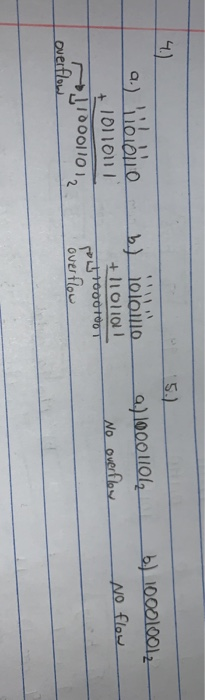 4.)
a.) 11010110
+ 10110111
110001101₂
overflow
b) 10101110
+ 11011011
110001001
overflow
5.)
a) 10001101₂
No overflow
b) 10001001₂
No flow